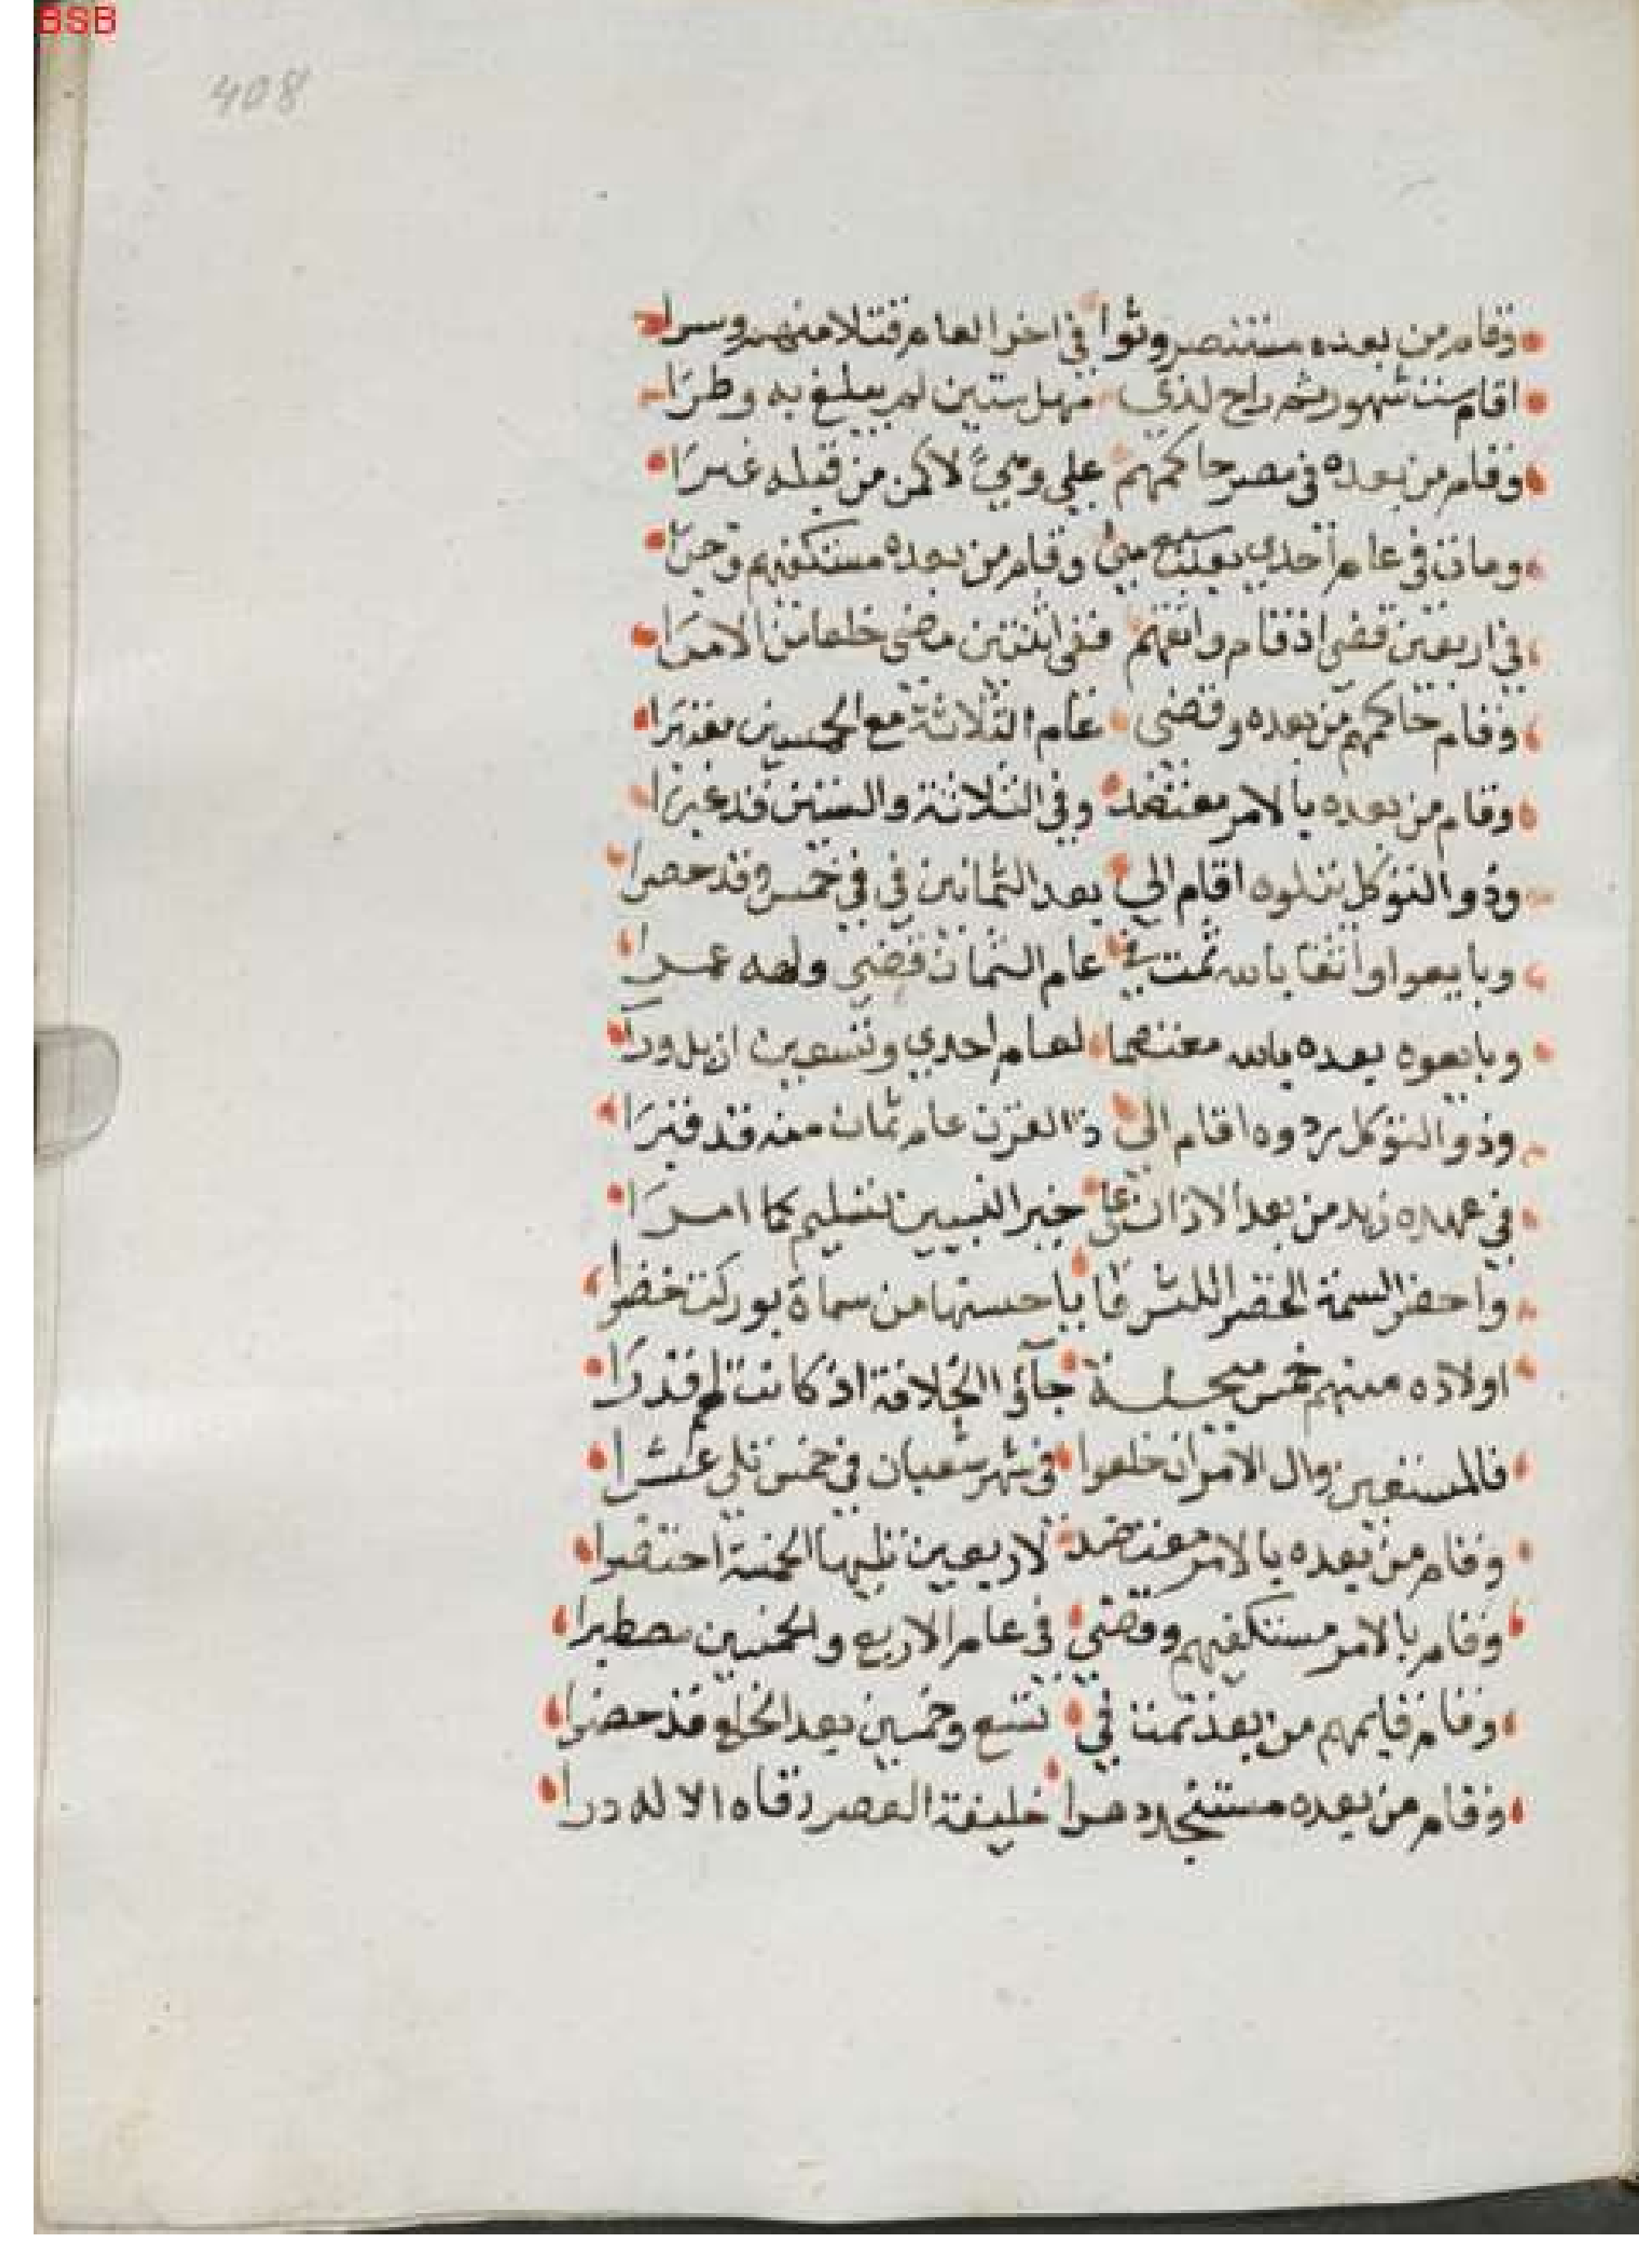 BSB
408
وقام من بعده مستنصر وثوا في اخر العام قتلا منهم وسرا
اقام ست شهور ثم راح لذي مهل ستين لم يبلغ به وطرا
وقام من بعده في مصر حاكمهم علي وهي لا كمن من قبله غبرا
ومات في عام احدي بعد سبع مئ وقام من بعده مستكفيهم وجرا
في اربعين قضى اذ قام واثقهم ففي اثنتين مضى خلعا من الامرا
وقام حاكمهم من بعده وقضى عام الثلاثة مع الخمسين مقتبرا
وقام من بعده بالامر معتضد وفي الثلاثة والستين قد عبرا
وذو التوكل يتلوه اقام الي بعد الثمانين في في خمس وقد حصرا
وبايعوا واثقا بالله ثمت في عام الثمان قضى ولصه عمرا
وبايعوه بعده بالله معتصما لعام احدي وتسعين ازيل ورا
وذو التوكل ردوه اقام الى ذا القرن عام ثمان منه قد قبرا
في عهده زيد من بعد الاذان على خير النبيين تسليم كما امرا
واحضر السمة الخضرا للشرفا يا حسنها من سماة بوركت خضرا
اولاده منهم خمس مبجلة جآؤا الخلافة اذ كانت لهم قدرا
فالمستعين وال الامر ان خلعوا في شهر شعبان في خمس تلي عشرا
وقام من بعده بالامر معتضد لاربعين تليها الخمسة احتضرا
وقام بالامر مستكفيهم وقضى في عام الاربع والخمسين مصطبرا
وقام قايمهم من بعد ثمت في تسع وخمسين بعد الخلع قد حصرا
وقام من بعده مستنجد دهرا خليفة العصر رقاه الاله درا